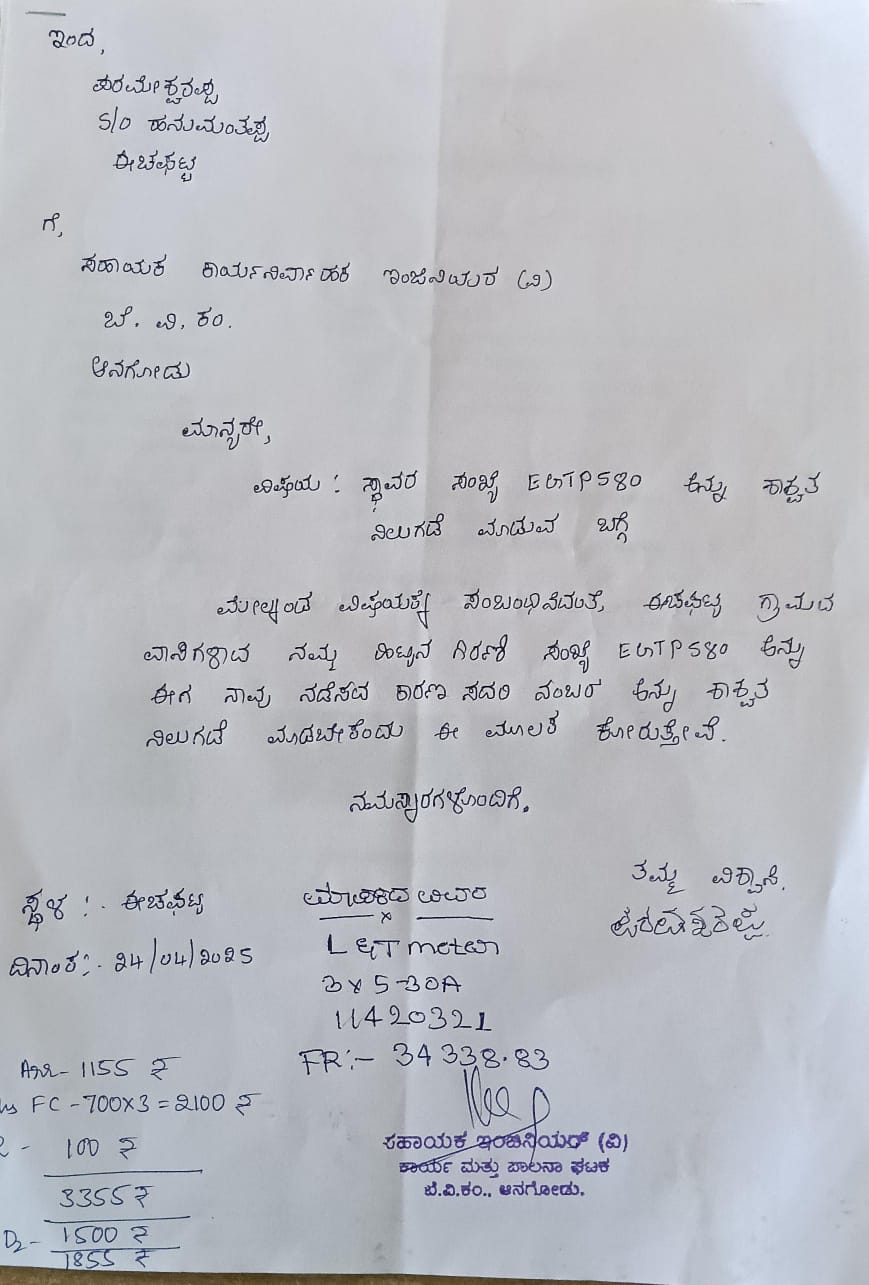 ಇಂದ,
ಪರಮೇಶ್ವರಪ್ಪ
S/o ಹನುಮಂತಪ್ಪ
ಈಚಘಟ್ಟ
ಗೆ,
ಸಹಾಯಕ ಕಾರ್ಯನಿರ್ವಾಹಕ ಇಂಜಿನಿಯರ (ವಿ)
ಬೆ. ವಿ. ಕಂ.
ಆನಗೋಡು
ಮಾನ್ಯರೇ,
ವಿಷಯ : ಸ್ಥಾವರ ಸಂಖ್ಯೆ EGTP580 ಕನ್ನು ಶಾಶ್ವತ
ನಿಲುಗಡೆ ಮಾಡುವ ಬಗ್ಗೆ
ಮೇಲ್ಕಂಡ ವಿಷಯಕ್ಕೆ ಸಂಬಂಧಿಸಿದಂತೆ, ಈಚಘಟ್ಟ ಗ್ರಾಮದ
ವಾಸಿಗಳಾದ ನಮ್ಮ ಹಿಟ್ಟಿನ ಗಿರಣಿ ಸಂಖ್ಯೆ EGTP580 ಕನ್ನು
ಈಗ ನಾವು ನಡೆಸದ ಕಾರಣ ಸದರಿ ನಂಬರ ಕನ್ನು ಶಾಶ್ವತ
ನಿಲುಗಡೆ ಮಾಡಬೇಕೆಂದು ಈ ಮೂಲಕ ಕೋರುತ್ತೇವೆ.
ನಮಸ್ಕಾರಗಳೊಂದಿಗೆ.
ತಮ್ಮ ವಿಶ್ವಾಸಿ.
ಪರಮೇಶ್ವರಪ್ಪ
ಸ್ಥಳ :. ಈಚಘಟ್ಟ
ದಿನಾಂಕ:. 24/04/2025
ಮಾಪಕದ ವಿವರ
x
L&T meter
3x5-30A
11420321
FR:- 34338.83
ಸಹಾಯಕ ಇಂಜಿನಿಯರ್ (ವಿ)
ಕಾರ್ಯ ಮತ್ತು ಪಾಲನಾ ಘಟಕ
ಬೆ.ವಿ.ಕಂ., ಆನಗೋಡು.
Arr - 1155 ₹
FC - 700x3 = 2100 ₹
100 ₹
3355 ₹
1500 ₹
1855 ₹